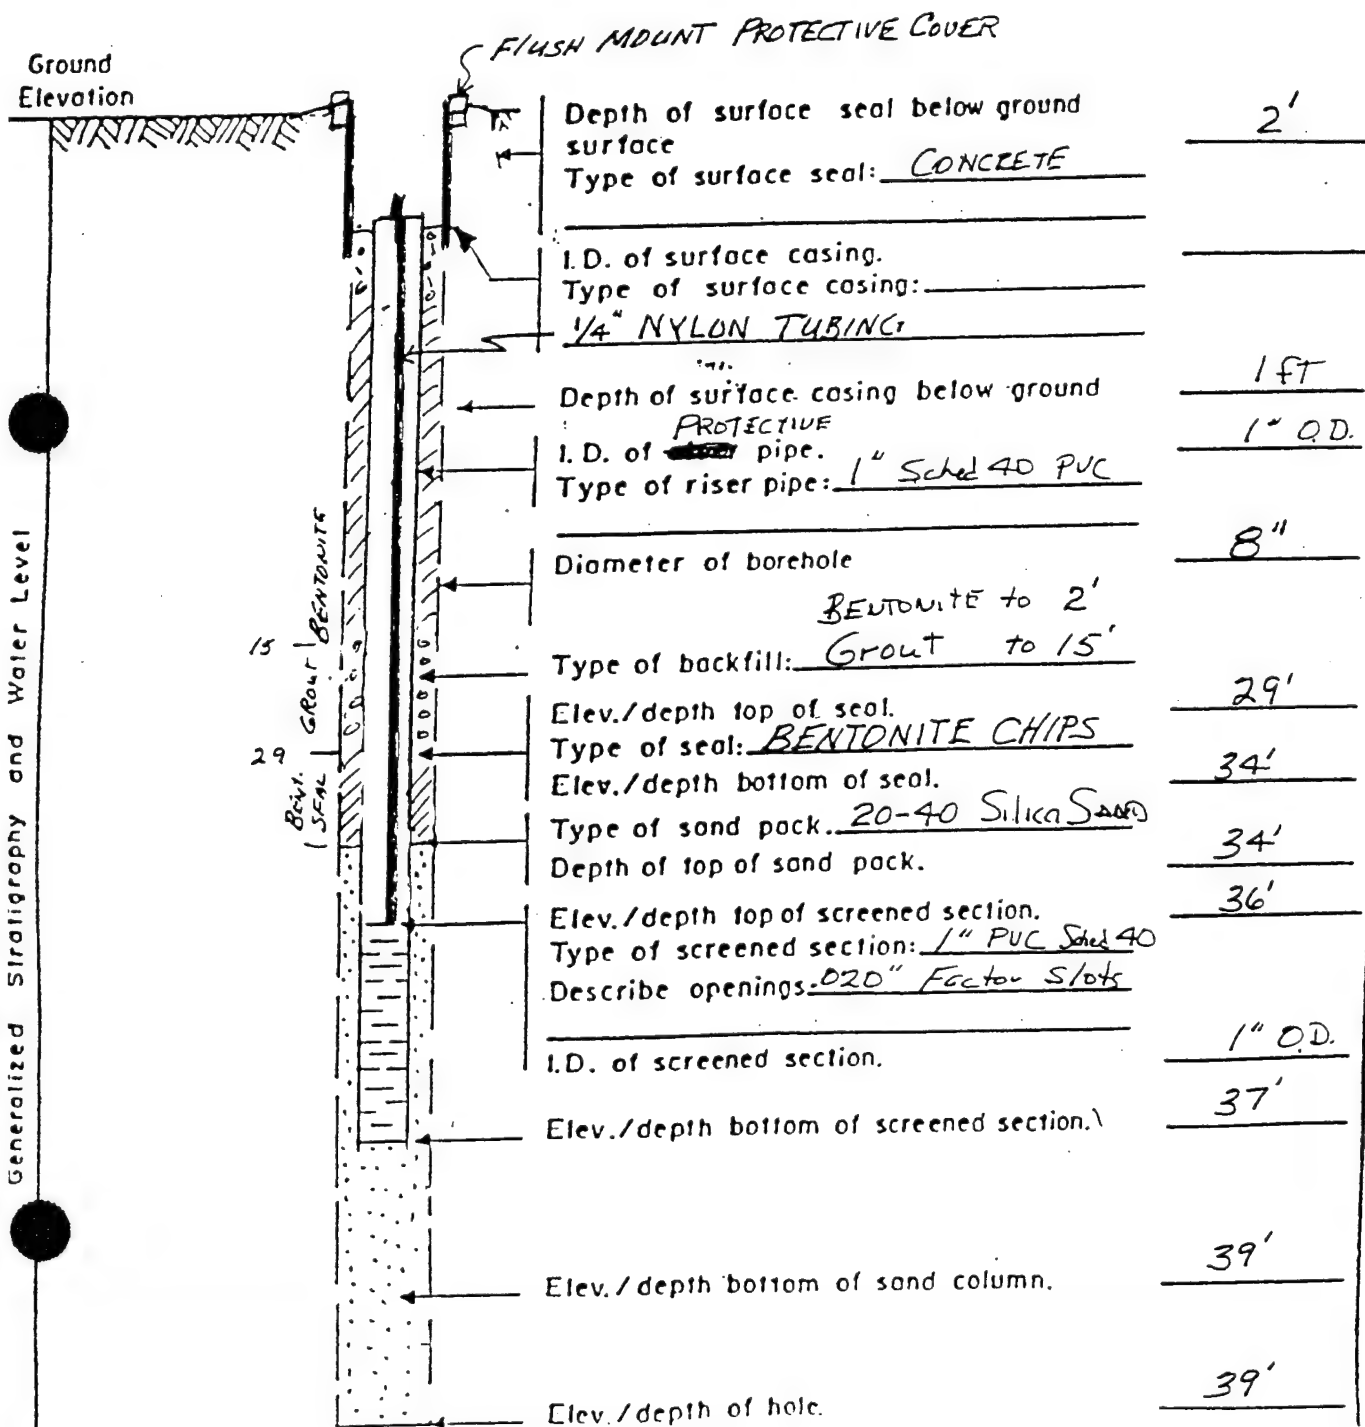 FLUSH MOUNT PROTECTIVE COVER
Ground
Elevation
Depth of surface seal below ground
surface
2'
Type of surface seal: CONCRETE
I.D. of surface casing.
Type of surface casing:
1/4" NYLON TUBING
Depth of surface casing below ground
1 FT
PROTECTIVE
I.D. of pipe.
1" O.D.
Type of riser pipe: 1" Sched 40 PVC
Diameter of borehole
8"
BENTONITE to 2'
Type of backfill: Grout to 15'
Elev./depth top of seal.
29'
Type of seal: BENTONITE CHIPS
Elev./depth bottom of seal.
34'
Type of sand pack. 20-40 Silica SAND
Depth of top of sand pack.
34'
Elev./depth top of screened section.
36'
Type of screened section: 1" PVC Sched 40
Describe openings: .020" Factor Slots
I.D. of screened section.
1" O.D.
Elev./depth bottom of screened section.
37'
Elev./depth bottom of sand column.
39'
Elev./depth of hole.
39'
Generalized Stratigraphy and Water Level
BENTONITE
15
GROUT
29
BENT.
SEAL